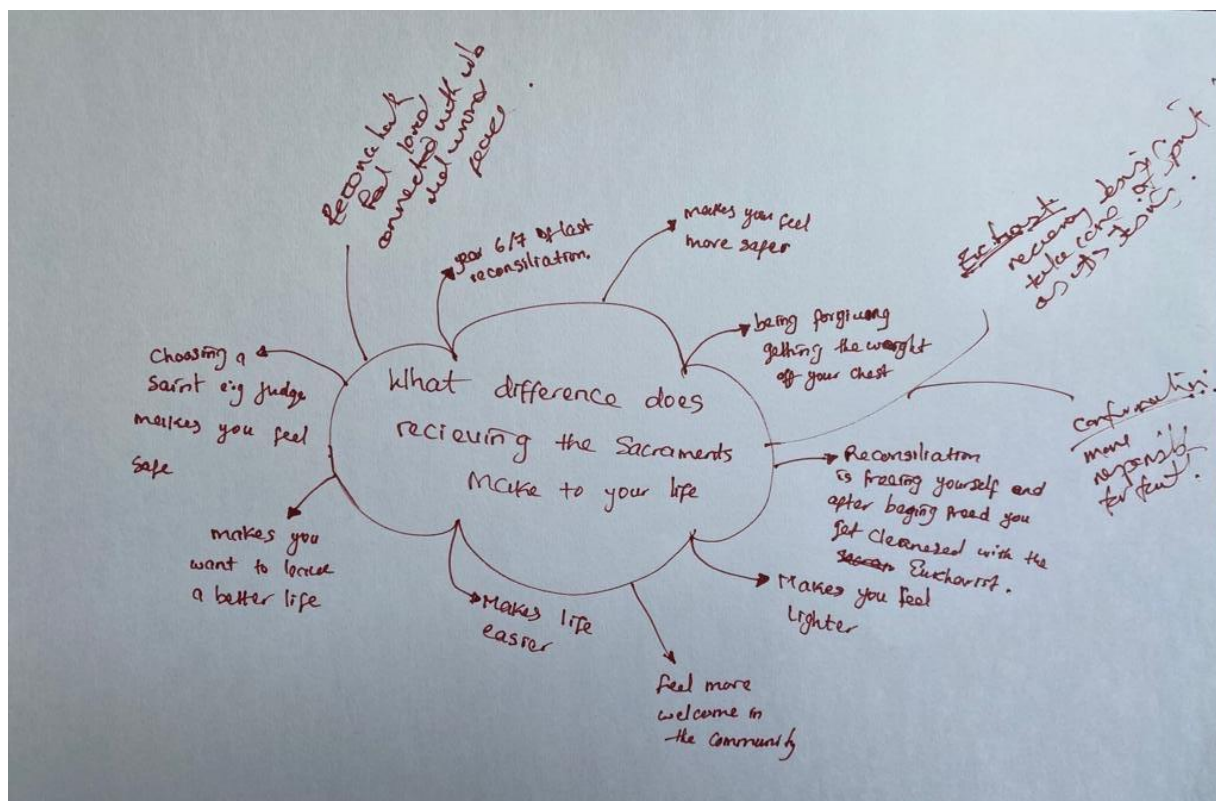 What difference does
recieving the Sacraments
Make to your life
feel loved
connected with
peace
year 6/7 of last
reconsiliation.
makes you feel
more safer
being forgiving
getting the weight
off your chest
Euchast
take care of
confirmation
more
responsible
for
Reconsiliation
is freeing yourself and
after beging freed you
get cleanesed with the
Eucharist.
Makes you feel
lighter
feel more
welcome in
the community
Makes life
easier
makes you
want to
a better life
Choosing a
Saint e.g Judge
makes you feel
safe